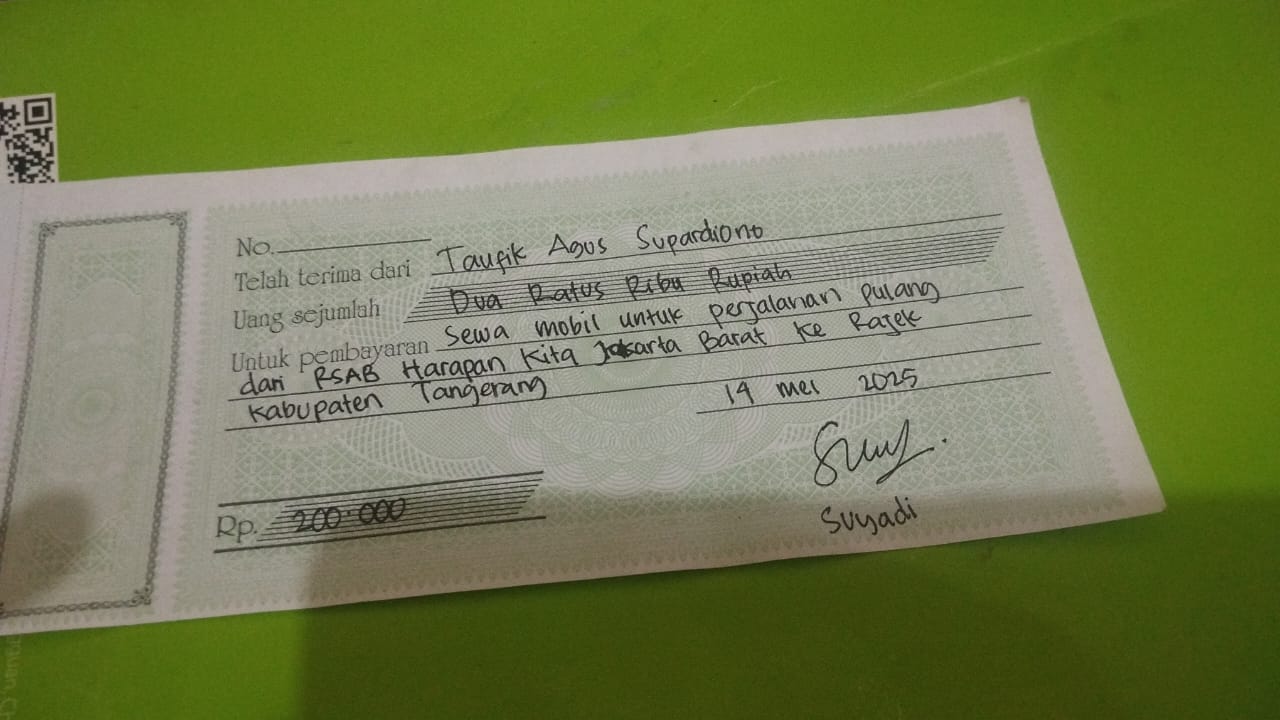 No.
Telah terima dari Taufik Agus Supardiono
Uang sejumlah Dua Ratus Ribu Rupiah
Untuk pembayaran Sewa mobil untuk perjalanan pulang
dari RSAB Harapan Kita Jakarta Barat ke Rajek
Kabupaten Tangerang
14 Mei 2025
Rp. 200.000
Suyadi